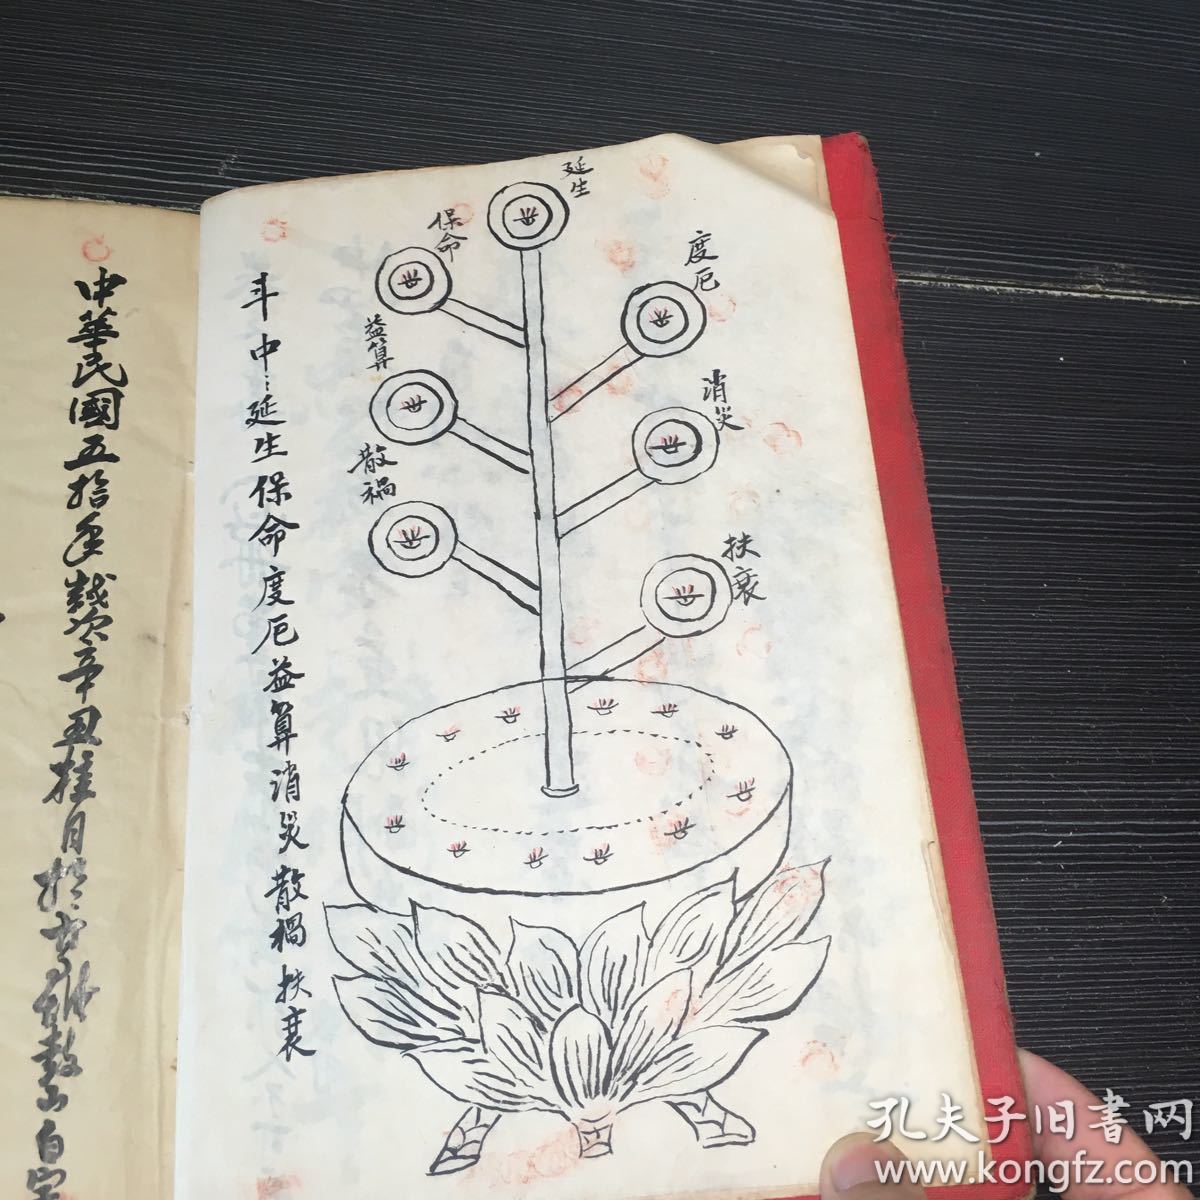 延生
度厄
保命
益算
消災
散禍
扶衰
斗中：延生保命度厄益算消災散禍扶衰
中華民國五拾年歲次辛丑桂月於古
孔夫子旧书网
www.kongfz.com